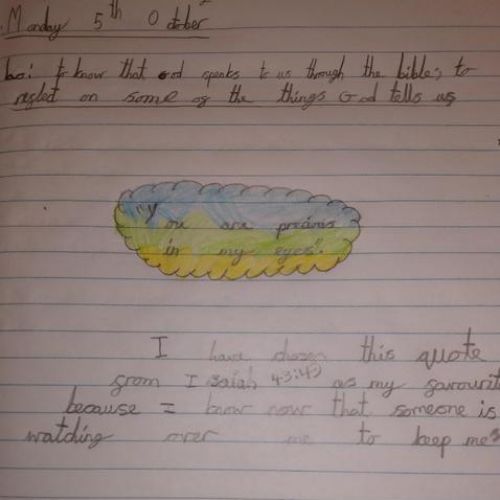 Monday 5th October
Lo: to know that God speaks to us through the bible; to
reflect on some of the things God tells us
"You are precious
in my eyes".
I have chosen this quote
from Isaiah 43:4 as my favourit
because I know now that someone is
watching over me to keep me